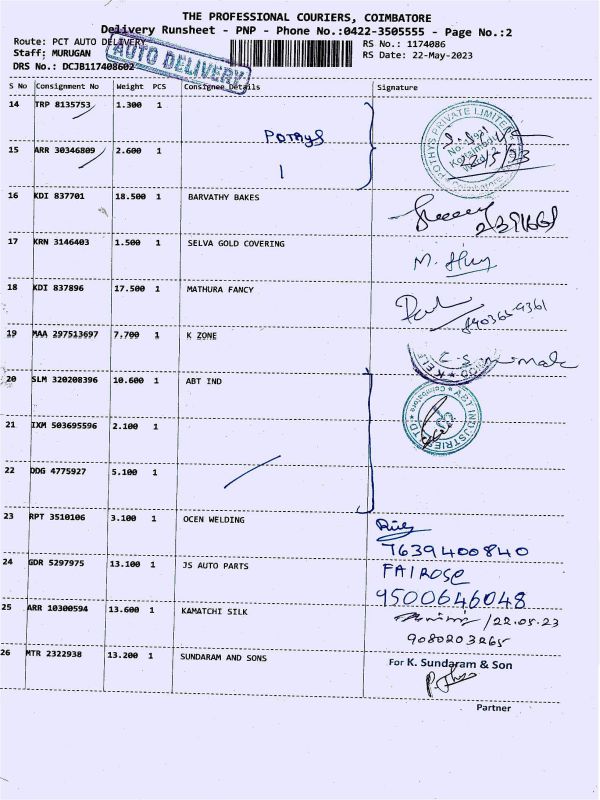 THE PROFESSIONAL COURIERS, COIMBATORE
Delivery Runsheet - PNP - Phone No.:0422-3505555 - Page No.:2
Route: PCT AUTO DELIVERY RS No.: 1174086
Staff: MURUGAN RS Date: 22-May-2023
DRS No.: DCJB117408602
AUTO DELIVERY
S No Consignment No Weight PCS Consignee Details Signature
14 TRP 8135753 1.300 1
POTHYS
15 ARR 30346809 2.600 1
POTHYS PRIVATE LIMITED
22/5/23
16 KDI 837701 18.500 1 BARVATHY BAKES
17 KRN 3146403 1.500 1 SELVA GOLD COVERING
M.
18 KDI 837896 17.500 1 MATHURA FANCY
19 MAA 297513697 7.700 1 K ZONE
20 SLM 320208396 10.600 1 ABT IND
ABT INDUSTRIES LTD Coimbatore
21 IXM 503695596 2.100 1
22 DDG 4775927 5.100 1
23 RPT 3510106 3.100 1 OCEN WELDING
7639400840
24 GDR 5297975 13.100 1 JS AUTO PARTS FAIROSE
9500646048
25 ARR 10300594 13.600 1 KAMATCHI SILK /22.05.23
9080203265
26 MTR 2322938 13.200 1 SUNDARAM AND SONS For K. Sundaram & Son
Partner